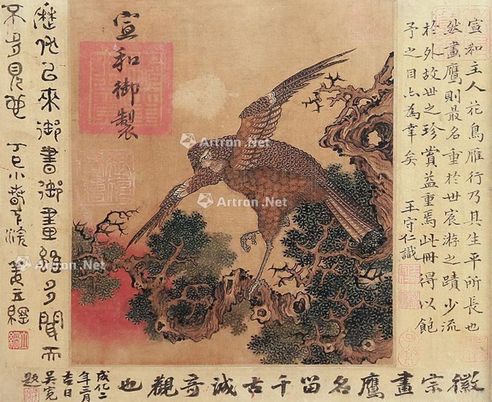 宣和主人花鳥雁行乃其生平所長也
然畫鷹則最名重於世宸游之蹟少流
於外故世之珍賞益重焉此冊得以飽
予之目亦為幸矣
王守仁識
宣和御製
歷代已來御書御畫雖多聞而
不多見也 丁巳小 下浣 姜立綱
徽宗畫鷹名留千古誠奇觀也
成化二
年三月
吉日
吳寬
題
Artron.Net
Artron.Net
Artron.Net
Artron.Net
Artron.Net
Artron.Net